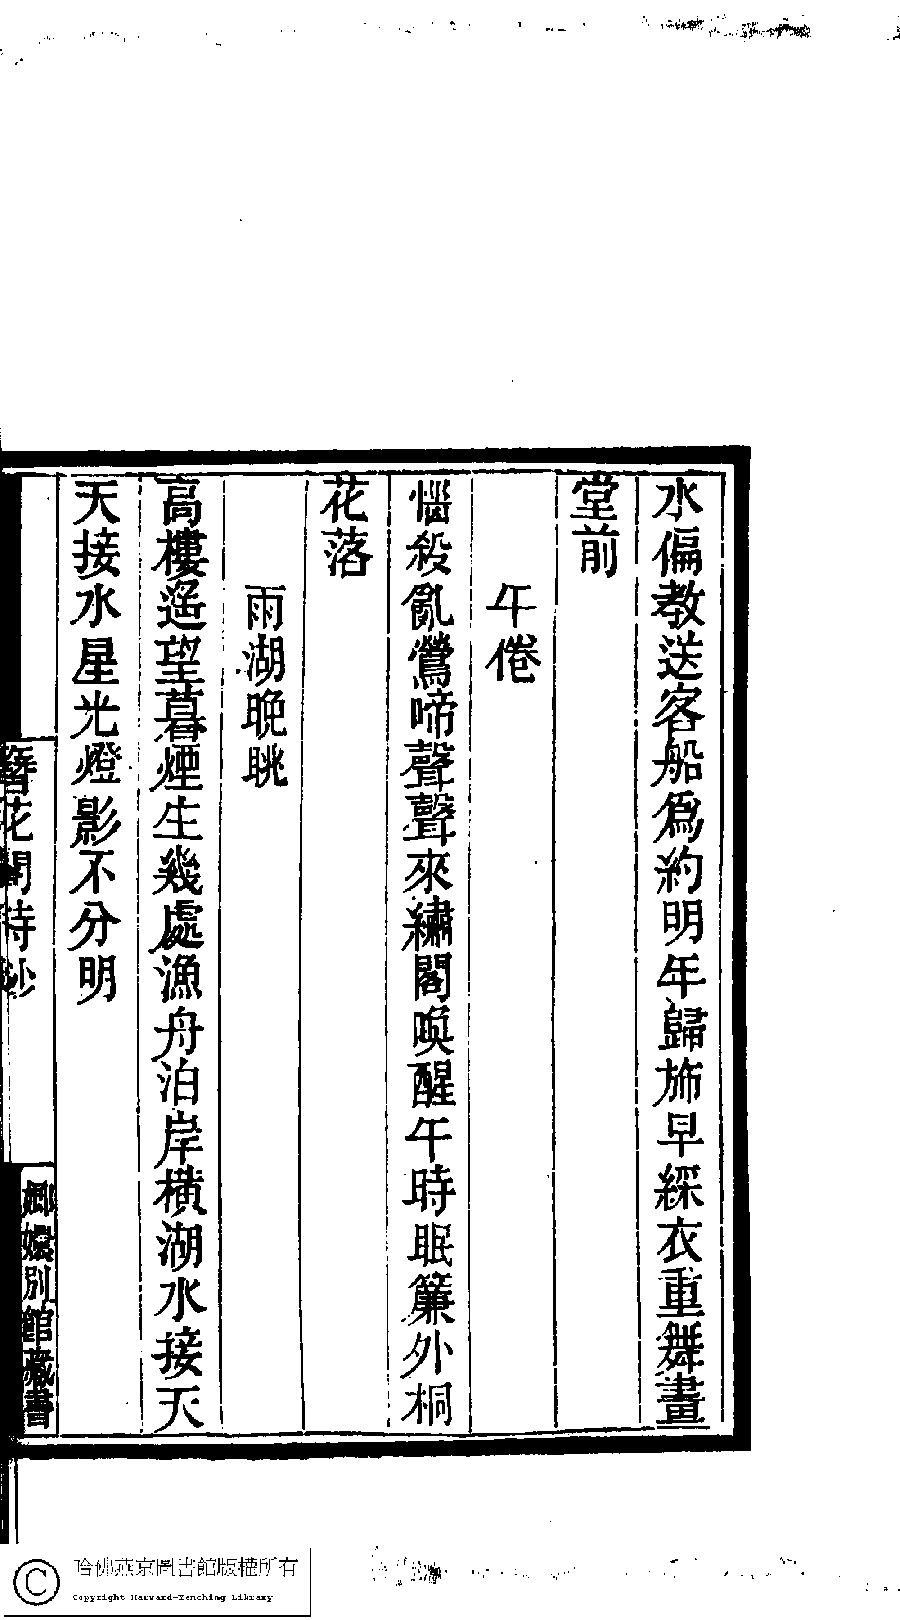 水偏教送客船爲約明年歸斾早綵衣重舞畫
堂前
午倦
惱殺亂鶯啼聲聲來繡閣喚醒午時眠簾外桐
花落
雨湖晚眺
高樓遥望暮煙生幾處漁舟泊岸橫湖水接天
天接水星光燈影不分明
簪花閣詩鈔
嫏嬛別館藏書
哈佛燕京圖書館版權所有
Copyright Harvard-Yenching Library